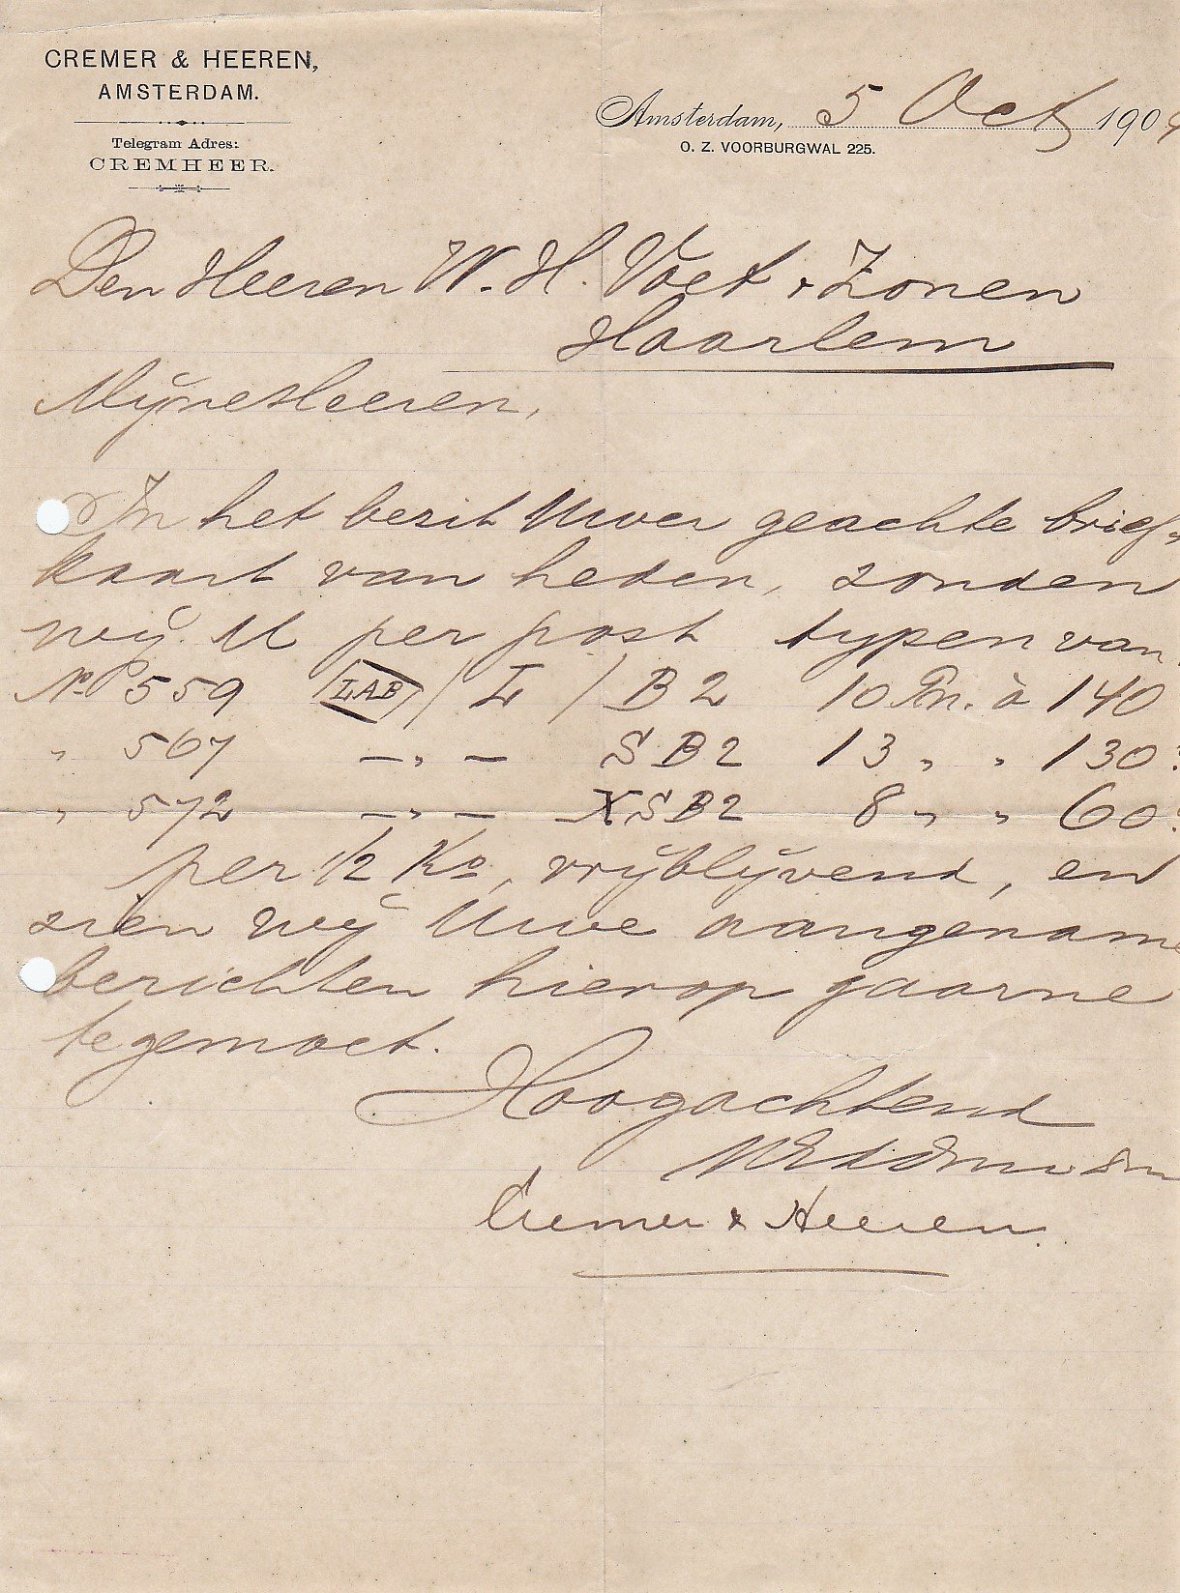 CREMER & HEEREN,
AMSTERDAM.
Telegram Adres:
CREMHEER.
Amsterdam, 5 Oct 1904
O. Z. VOORBURGWAL 225.
Den Heeren W. H. Voet & Zonen
Haarlem
Mijne Heeren,
In het bezit Uwer geachte brief-
kaart van heden, zonden
wij U per post typen van
No 559 /LAB/ L / B2 10 Pn. à 140
" 567 — " — SB2 13 " " 130
" 572 — " — XSB2 8 " " 60
per 1/2 Ko, vrijblijvend, en
zien wij Uwe aangename
berichten hierop gaarne
tegemoet.
Hoogachtend
Cremer & Heeren.